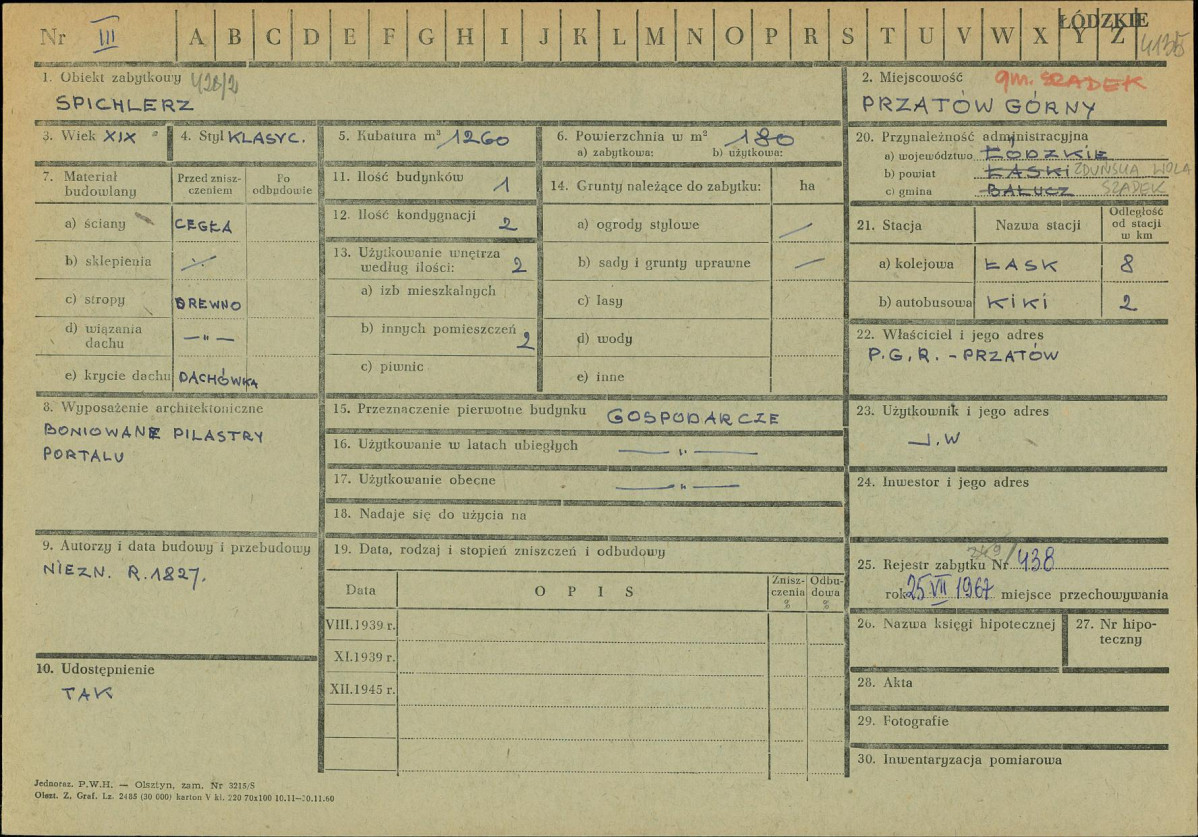 Nr III A B C D E F G H I J K L M N O P R S T U V W X Y Z
ŁÓDZKIE
4135
1. Obiekt zabytkowy
SPICHLERZ
2. Miejscowość gm. SZADEK
PRZATÓW GÓRNY
3. Wiek XIX
4. Styl KLASYC.
5. Kubatura m³ 1260
6. Powierzchnia w m² 180
a) zabytkowa: b) użytkowa:
7. Materiał budowlany
Przed znisz-
czeniem
Po
odbudowie
a) ściany CEGŁA
b) sklepienia
c) stropy DREWNO
d) wiązania
dachu — „ —
e) krycie dachu DACHÓWKA
8. Wyposażenie architektoniczne
BONIOWANE PILASTRY
PORTALU
9. Autorzy i data budowy i przebudowy
NIEZN. R.1827.
10. Udostępnienie
TAK
11. Ilość budynków 1
12. Ilość kondygnacji 2
13. Użytkowanie wnętrza
według ilości: 2
a) izb mieszkalnych
b) innych pomieszczeń 2
c) piwnic
14. Grunty należące do zabytku: ha
a) ogrody stylowe —
b) sady i grunty uprawne —
c) lasy
d) wody
e) inne
15. Przeznaczenie pierwotne budynku GOSPODARCZE
16. Użytkowanie w latach ubiegłych — „ —
17. Użytkowanie obecne — „ —
18. Nadaje się do użycia na
19. Data, rodzaj i stopień zniszczeń i odbudowy
Data OPIS
Znisz-
czenia
%
Odbu-
dowa
%
VIII.1939 r.
XI.1939 r.
XII.1945 r.
20. Przynależność administracyjna
a) województwo ŁÓDZKIE
b) powiat ŁASKI ZDUŃSKA WOLA
c) gmina BAŁUCZ SZADEK
21. Stacja Nazwa stacji
Odległość
od stacji
w km
a) kolejowa ŁASK 8
b) autobusowa KIKI 2
22. Właściciel i jego adres
P.G.R. - PRZATÓW
23. Użytkownik i jego adres
J.W
24. Inwestor i jego adres
25. Rejestr zabytku Nr 249/438
rok 25 VII 1967 miejsce przechowywania
26. Nazwa księgi hipotecznej
27. Nr hipo-
teczny
28. Akta
29. Fotografie
30. Inwentaryzacja pomiarowa
Jednoraz. P.W.H. — Olsztyn, zam. Nr 3215/S
Olszt. Z. Graf. Lz. 2485 (30 000) karton V kl. 220 70x100 10.11—30.11.60